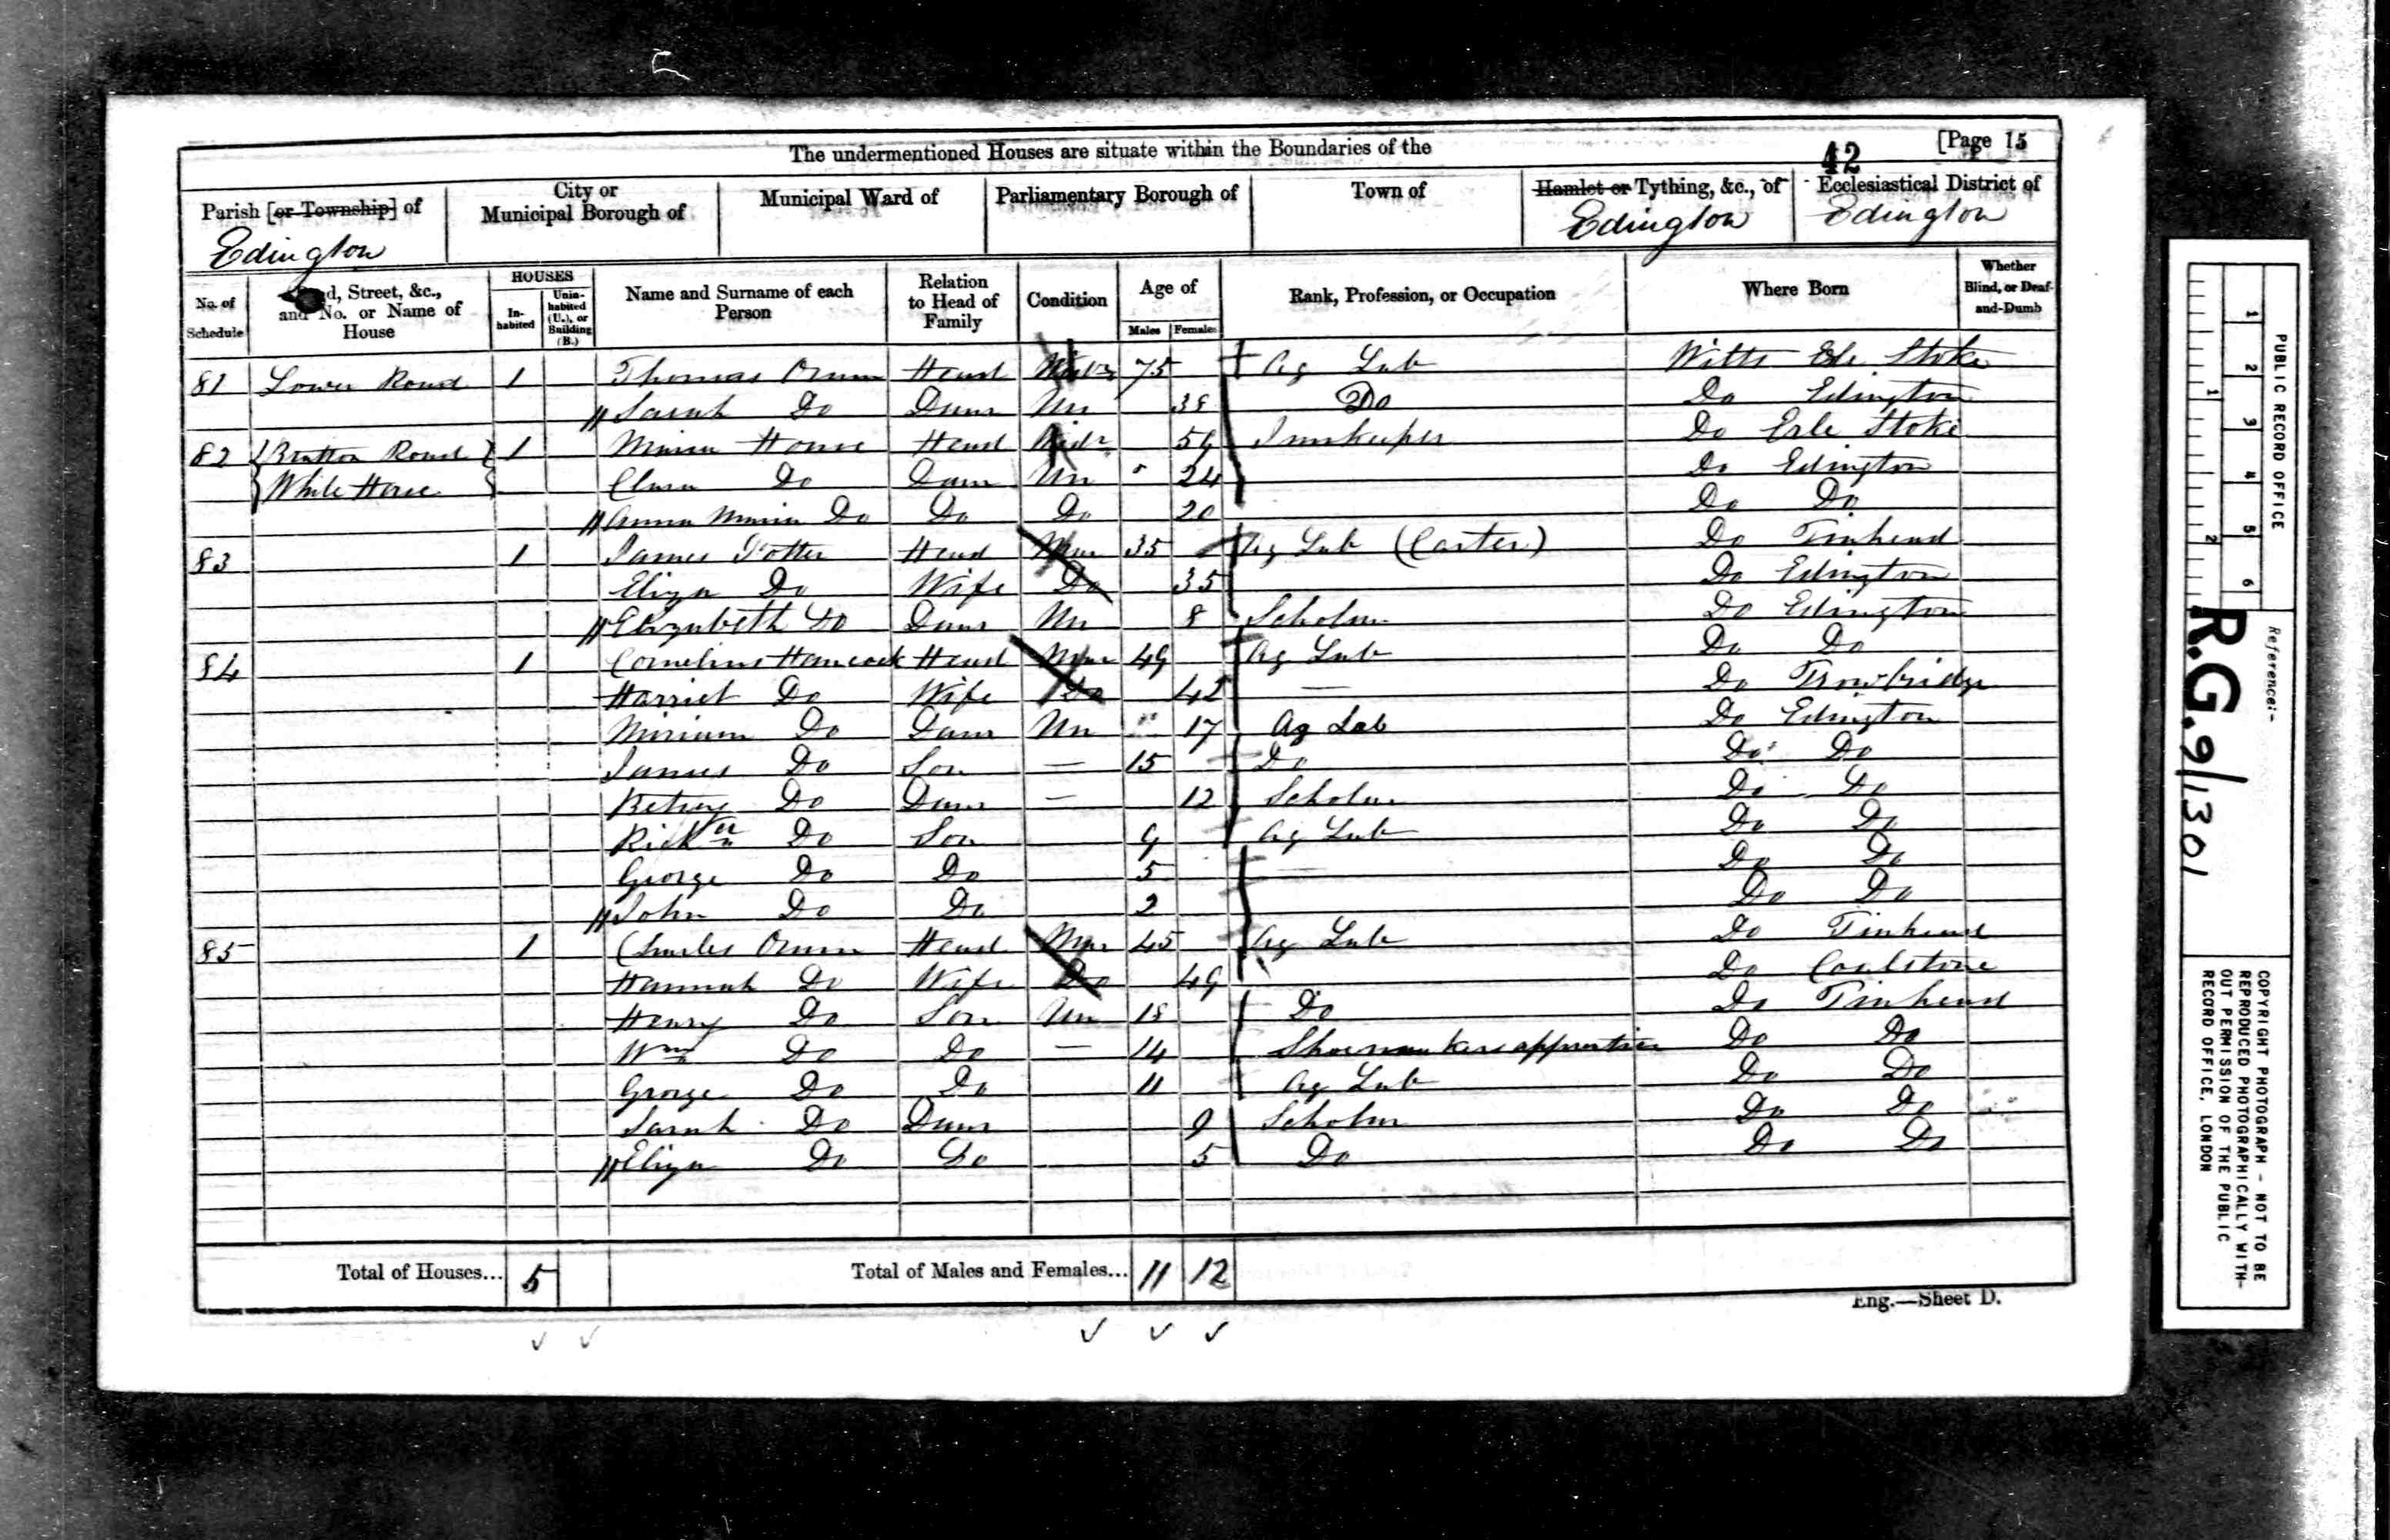 The undermentioned Houses are situate within the Boundaries of the
42
[Page 15
Parish [or Township] of
City or Municipal Borough of
Municipal Ward of
Parliamentary Borough of
Town of
Hamlet or Tything, &c., of
Ecclesiastical District of
Edington
Edington
Edington
No. of Schedule
d, Street, &c., and No. or Name of House
HOUSES
In-habited
Unin-habited (U.), or Building (B.)
Name and Surname of each Person
Relation to Head of Family
Condition
Age of
Males
Females
Rank, Profession, or Occupation
Where Born
Whether Blind, or Deaf-and-Dumb
81 Lower Road 1 Thomas Head 75 Ag Lab Wilts Erle Stoke
Sarah Do Daur Un 38 Do Do Edington
82 Bratton Road 1 House Head Widr 59 Innkeeper Do Erle Stoke
White Horse Clara Do Daur Un 24 Do Edington
Anna Maria Do Do Do 20 Do Do
83 1 James Potter Head Mar 35 Ag Lab (Carter) Do Tinhead
Eliza Do Wife Do 35 Do Edington
Elizabeth Do Daur Un 8 Scholar Do Edington
84 1 Cornelius Hancock Head Mar 49 Ag Lab Do Do
Harriet Do Wife Do 42 — Do Trowbridge
Miriam Do Daur Un 17 Ag Lab Do Edington
James Do Son — 15 Do Do Do
Betsey Do Daur — 12 Scholar Do Do
Do Son 9 Ag Lab Do Do
George Do Do 5 — Do Do
John Do Do 2 Do Do
85 1 Charles Head Mar 45 Ag Lab Do Tinhead
Hannah Do Wife Do 49 Do Coulstone
Henry Do Son Un 18 Do Do Tinhead
Wm Do Do — 14 Shoemakers apprentice Do Do
George Do Do 11 Ag Lab Do Do
Sarah Do Daur 9 Scholar Do Do
Eliza Do Do 5 Do Do Do
Total of Houses... 5
Total of Males and Females... 11 12
Eng.—Sheet D.
1 2 3 4 5 6
1 2
PUBLIC RECORD OFFICE
Reference:-
R.G. 9/1301
COPYRIGHT PHOTOGRAPH - NOT TO BE
REPRODUCED PHOTOGRAPHICALLY WITH-
OUT PERMISSION OF THE PUBLIC
RECORD OFFICE, LONDON